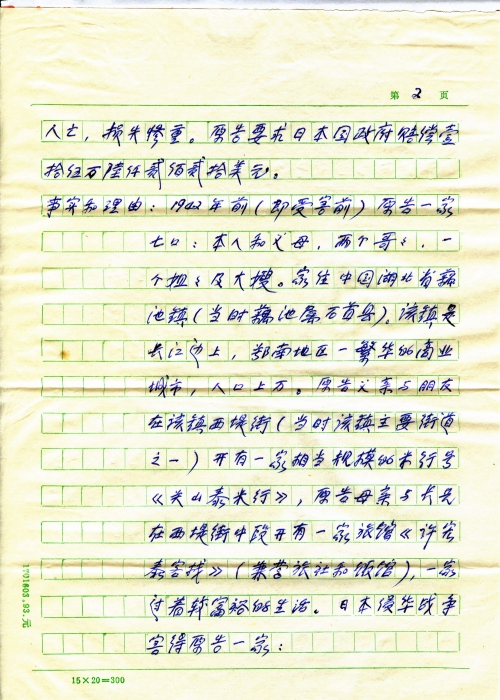 第 2 页
人亡，损失惨重。原告要求日本国政府赔偿壹
拾伍万陆仟贰佰贰拾美元。
事实和理由：1942年前（即受害前）原告一家
七口：本人和父母，两个哥哥，一
个姐姐及大嫂。家住中国湖北省藕
池镇（当时藕池属石首县）。该镇是
长江边上，鄂南地区一繁华的商业
城市，人口上万。原告父亲与朋友
在该镇西堤街（当时该镇主要街道
之一）开有一家相当规模的米行号
《关山泰米行》，原告母亲与大兄
在西堤街中段开有一家旅馆《许宏
泰客栈》（兼营旅社和饭馆），一家
过着较富裕的生活。日本侵华战争
害得原告一家：
1701603.93.元
15×20=300